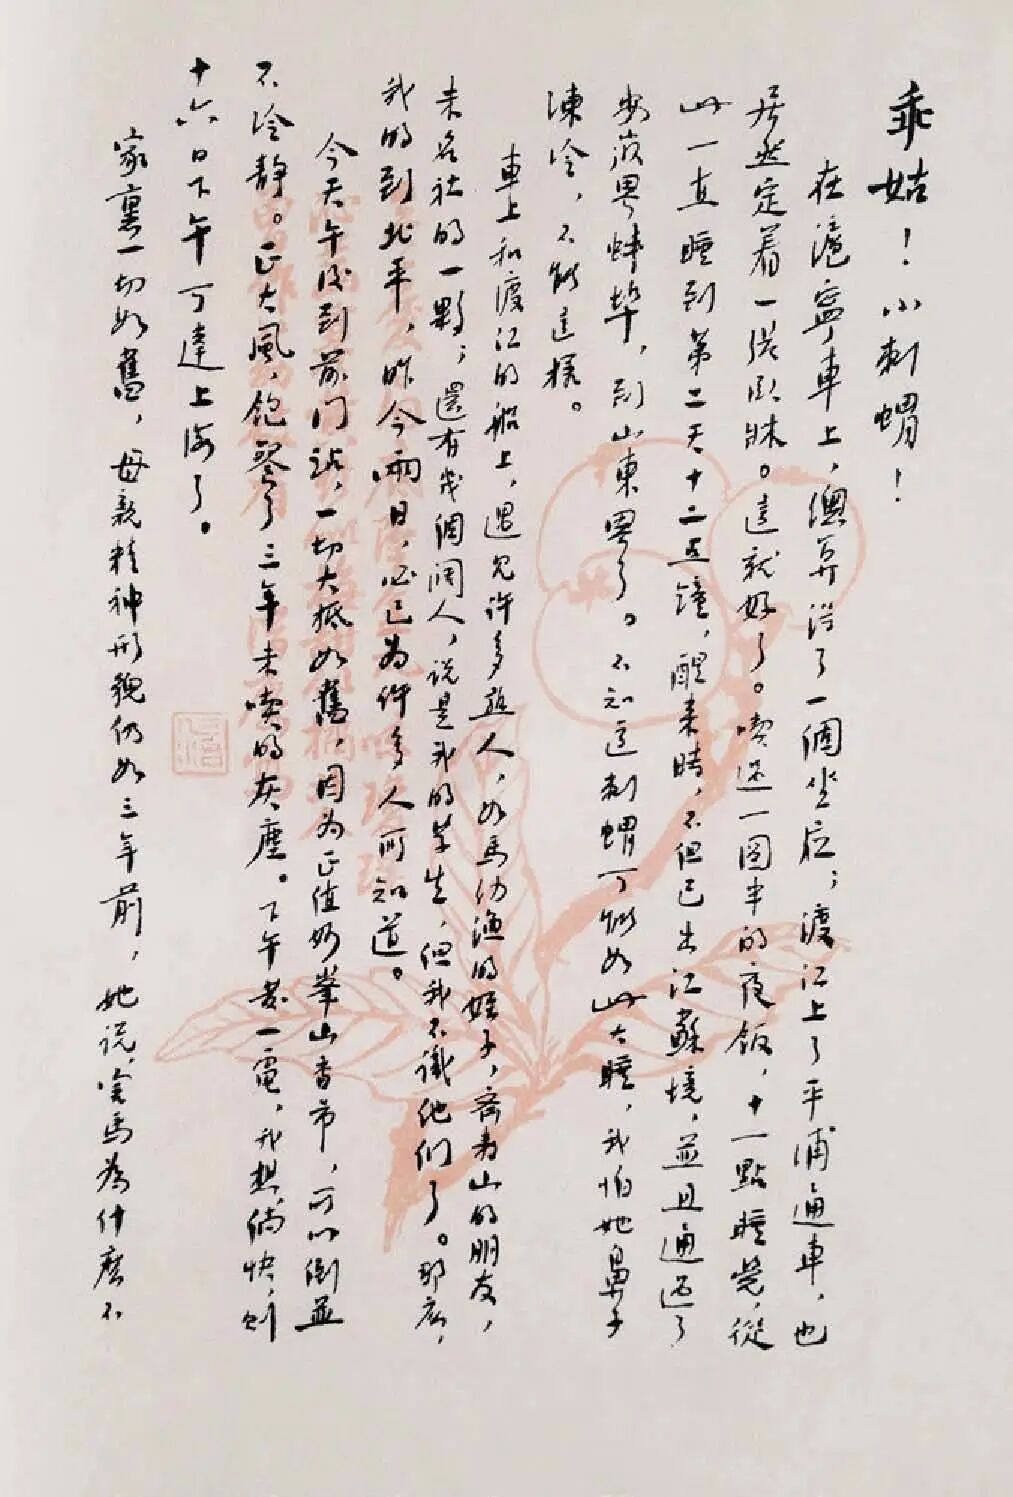 乖姑！小刺蝟！
在滬寧車上，總算得了一個坐位；渡江上了平浦通車，也
居然定着一張臥牀。這就好了。喫過一圓半的夜飯，十一點睡覺，從
此一直睡到第二天十二點鐘，醒來時，不但已出江蘇境，並且通過了
安徽界蚌埠，到山東界了。不知道刺蝟可能如此大睡，我怕她鼻子
凍冷，不能這樣。
車上和渡江的船上，遇見許多熟人，如馬幼漁的姪子，齊壽山的朋友，
未名社的一夥；還有幾個闊人，說是我的學生，但我不識他們了。那麽，
我的到北平，昨今兩日，必已為許多人所知道。
今天午後到前门站，一切大抵如舊，因为正值妙峯山香市，可以倒並
不冷靜。正大風，飽餐了三年未喫的灰塵。下午發一電，我想，倘快，則
十六日下午可達上海了。
家裏一切如舊，母親精神形貌仍如三年前，她說，害馬為什麽不